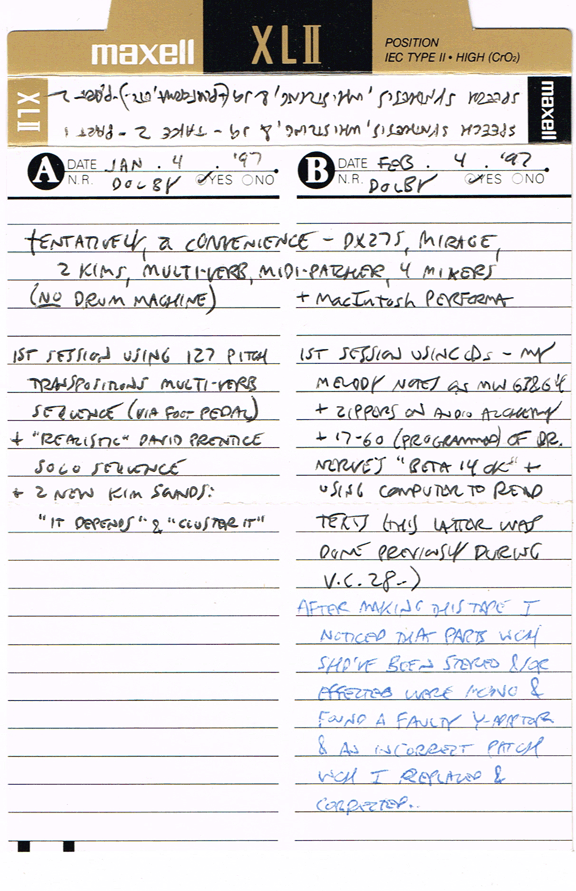 maxell XLII POSITION
IEC TYPE II • HIGH (CrO₂)
XLII
SPEECH SYNTHESIS, WHISTLING, & - TAKE 2 - PART 1
SPEECH SYNTHESIS, WHISTLING, & - PART 2
maxell
A DATE JAN. 4. '97
N.R. DOLBY YES NO
B DATE FEB. 4. '97
N.R. DOLBY YES NO
tENTATIVELY, a CONVENIENCE - DX27S, MIRAGE,
2 KIMS, MULTI-VERB, MIDI-PATCHER, 4 MIXERS
(NO DRUM MACHINE)
+ MACINTOSH PERFORMA
1ST SESSION USING 127 PITCH
TRANSPOSITIONS MULTI-VERB
SEQUENCE (VIA FOOT PEDAL)
+ "REALISTIC" DAVID PRENTICE
SOLO SEQUENCE
+ 2 NEW KIM SANDS:
"IT DEPENDS" & "CLUSTER IT"
1ST SESSION USING CDs - MY
MELODY NOTES ON MW 638264
+ ZIPPERS ON AUDIO ALCHEMY
+ 17-60 (PROGRAMMED) OF DR.
NERVE'S "BETA 14 OK" +
USING COMPUTER TO READ
TEXTS (THIS LATTER WAS
DONE PREVIOUSLY DURING
V.C. 28-)
AFTER MAKING THIS TAPE I
NOTICED THAT PARTS WCH
SHD'VE BEEN STEREO &/OR
EFFECTED WERE MONO &
FOUND A FAULTY Y-ADAPTOR
& AN INCORRECT PATCH
WCH I REPLACED &
CORRECTED..